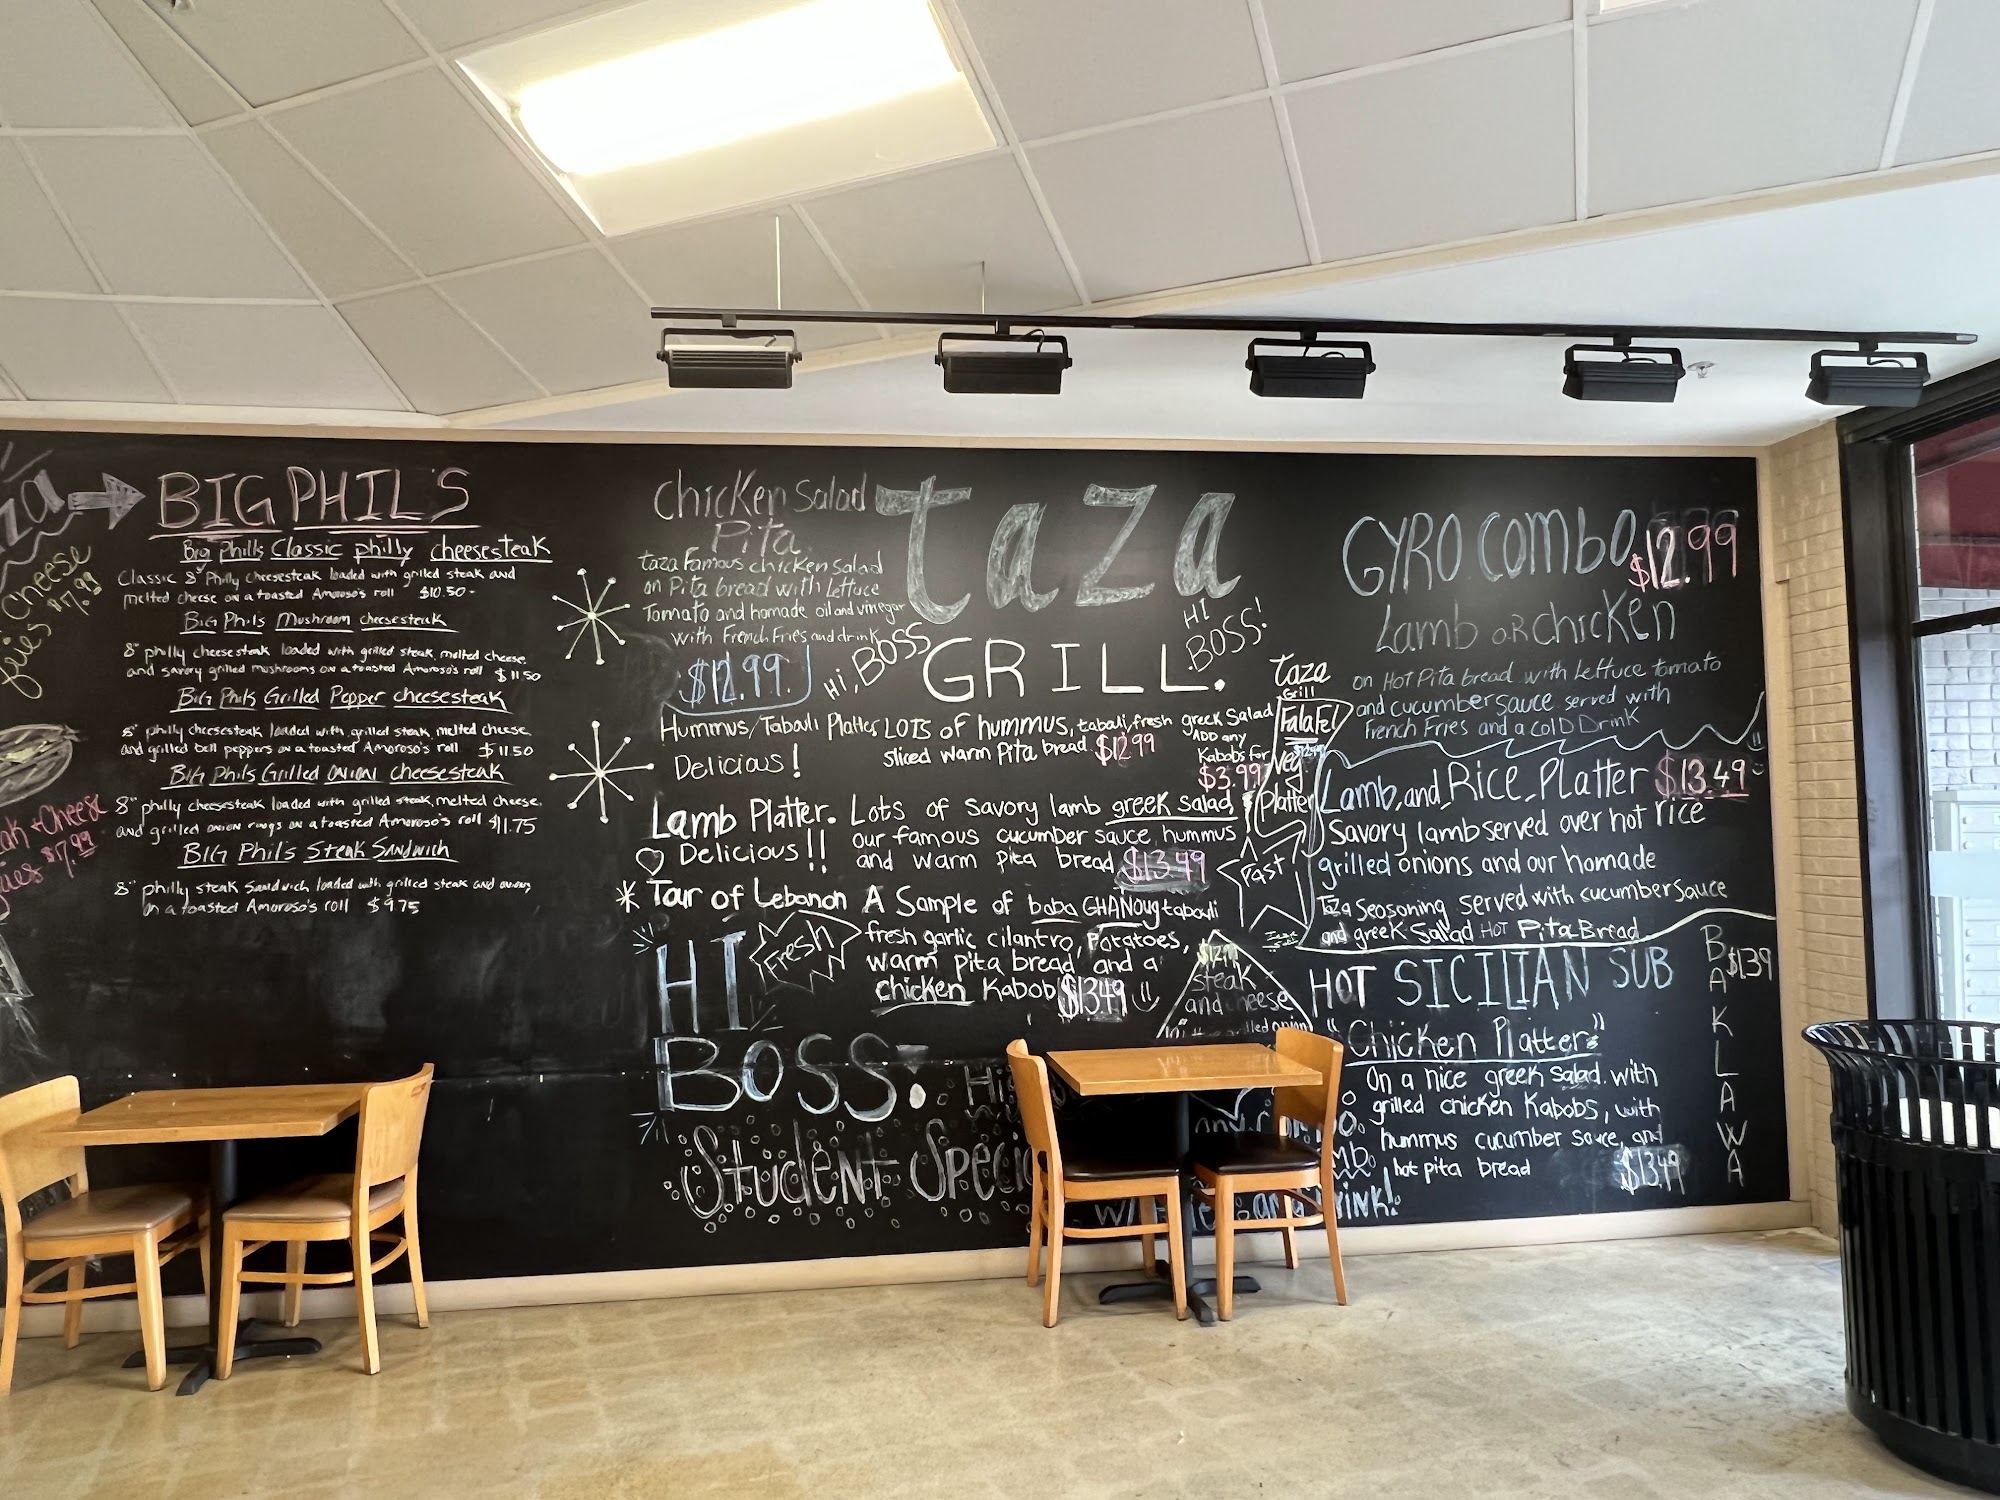 cheese
$7.99
fries
BIG PHIL'S
Big Phills Classic philly cheesesteak
Classic 8" Philly cheesesteak loaded with grilled steak and
melted cheese on a toasted Amoroso's roll $10.50-
Big Phils Mushroom cheesesteak
8" philly cheesesteak loaded with grilled steak, melted cheese,
and savory grilled mushrooms on a toasted Amoroso's roll $11.50
Big Phils Grilled Pepper cheesesteak
8" philly cheesesteak loaded with grilled steak, melted cheese,
and grilled bell peppers on a toasted Amoroso's roll $11.50
Big Phils Grilled onion cheesesteak
8" philly cheesesteak loaded with grilled steak, melted cheese,
and grilled onion rings on a toasted Amoroso's roll $11.75
BIG Phil's Steak Sandwich
8" philly steak sandwich loaded with grilled steak and onions,
on a toasted Amoroso's roll $9.75
Cheese
$7.99
Chicken Salad
Pita
taza Famous chicken Salad
on Pita bread with Lettuce
Tomato and homade oil and vinegar
with French Fries and drink
$12.99.
taza
GRILL.
Hi, BOSS
HI
BOSS!
Hummus/Tabouli Platter LOTS of hummus, tabouli, fresh greek Salad
Delicious! sliced warm Pita bread. $12.99
ADD any
Kabobs for
$3.99
Lamb Platter. Lots of savory lamb greek salad,
Delicious!! our famous cucumber sauce, hummus
and warm pita bread $13.49
Tour of Lebanon A Sample of baba GHANoug tabouli
fresh garlic cilantro, Potatoes,
warm pita bread and a
chicken Kabob $13.49
Fresh
HI
BOSS:
Student Speci
taza
Grill
Falafel
Veg
Platter
Fast
$12.99
steak
and cheese
GYRO COMBO $12.99
Lamb OR chicken
on Hot Pita bread with Lettuce tomato
and cucumber sauce served with
French Fries and a cold Drink
Lamb and Rice Platter $13.49
Savory lamb served over hot rice
grilled onions and our homade
Taza Seosoning served with cucumber sauce
and greek Salad HOT Pita Bread
HOT SICILIAN SUB
"Chicken Platter"
On a nice greek salad with
grilled chicken Kabobs, with
hummus cucumber sauce, and
hot pita bread $13.49
BAKLAWA
$1.39